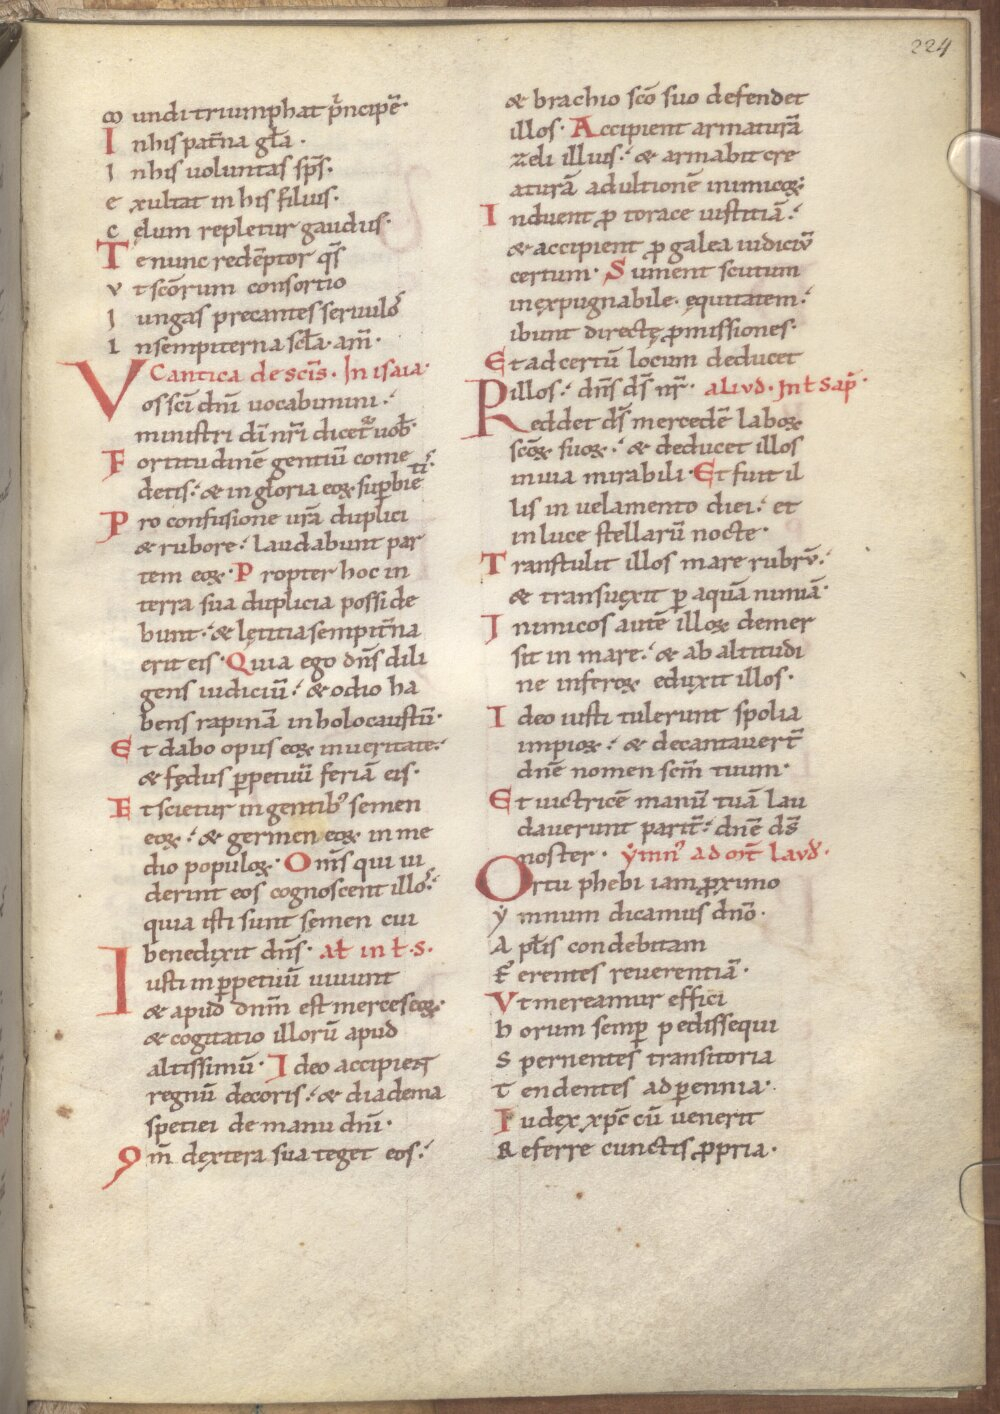 224
mundi triumphat p̄ncipē·
In his pat̄na gl̄a·
In his uoluntas sp̄s·
exultat in his filius·
cęlum repletur gaudiis·
Te nunc redēptor q̄s
vt scōrum consortio
Iungas precantes seruulos̓
Insempiterna scl̄a· am̄·
Cantica de scīs· In isaia·
Vos scī dnī uocabimini·
ministri dī nr̄i dicet᷑ uob̄·
Fortitudinē gentiū come
detis: & in gloria eoꝝ supbietis̓·
Pro confusione urā duplici
& rubore: laudabunt par
tem eoꝝ· Propter hoc in
terra sua duplicia posside
bunt: & lętitia sempit̄na
erit eis· Quia ego dn̄s dili
gens iudiciū: & odio ha
bens rapinā in holocaustū·
Et dabo opus eoꝝ in ueritate:
& fędus ꝑpetuū feriā eis·
Et scietur in gentib' semen
eoꝝ: & germen eoꝝ in me
dio populoꝝ· Om̄s qui ui
derint eos cognoscent illos̓:
quia isti sunt semen cui
benedixit dn̄s· al̄ in l̄·s·
Iusti in ꝑpetuū uiuunt
& apud dnm̄ est merces eoꝝ·
& cogitatio illorū apud
altissimū· Ideo accipient
regnū decoris: & diadema
spetiei de manu dnī·
Qm̄ dextera sua teget eos:
& brachio scō suo defendet
illos· Accipient armaturā
zeli illius: & armabit cre
aturā ad ultionē inimicoꝝ·
Induent ꝓ torace iustitiā:
& accipient ꝓ galea iudiciū
certum· Sument scutum
inexpugnabile· equitatem:
ibunt directę ꝓmissiones·
Et ad certū locum deducet
illos: dn̄s ds̄ nr̄· aliud· In l̄ sap̄·
Reddet ds̄ mercedē laboꝝ
scōꝝ suoꝝ: & deducet illos
in uia mirabili· Et fuit il
lis in uelamento diei: et
in luce stellarū nocte·
Transtulit illos mare rubrū:
& transuexit ꝑ aquā nimiā·
Inimicos autē illoꝝ demer
sit in mare: & ab altitudi
ne inferoꝝ eduxit illos·
Ideo iusti tulerunt spolia
impioꝝ: & decantauert̄
dnē nomen scm̄ tuum·
Et uictricē manū tuā lau
dauerunt parit̄: dnē ds̄
noster· ẏmn' ad mt̄ laud̄·
Ortu phebi iam ꝓximo
ẏmnum dicamus dnō·
Apl̄is condebitam
Ferentes reuerentiā·
Vt mereamur effici
horum semꝑ pedissequi
Spernentes transitoria
tendentes ad ꝑennia·
Iudex xp̄c cū uenerit
Referre cunctis ꝓpria·